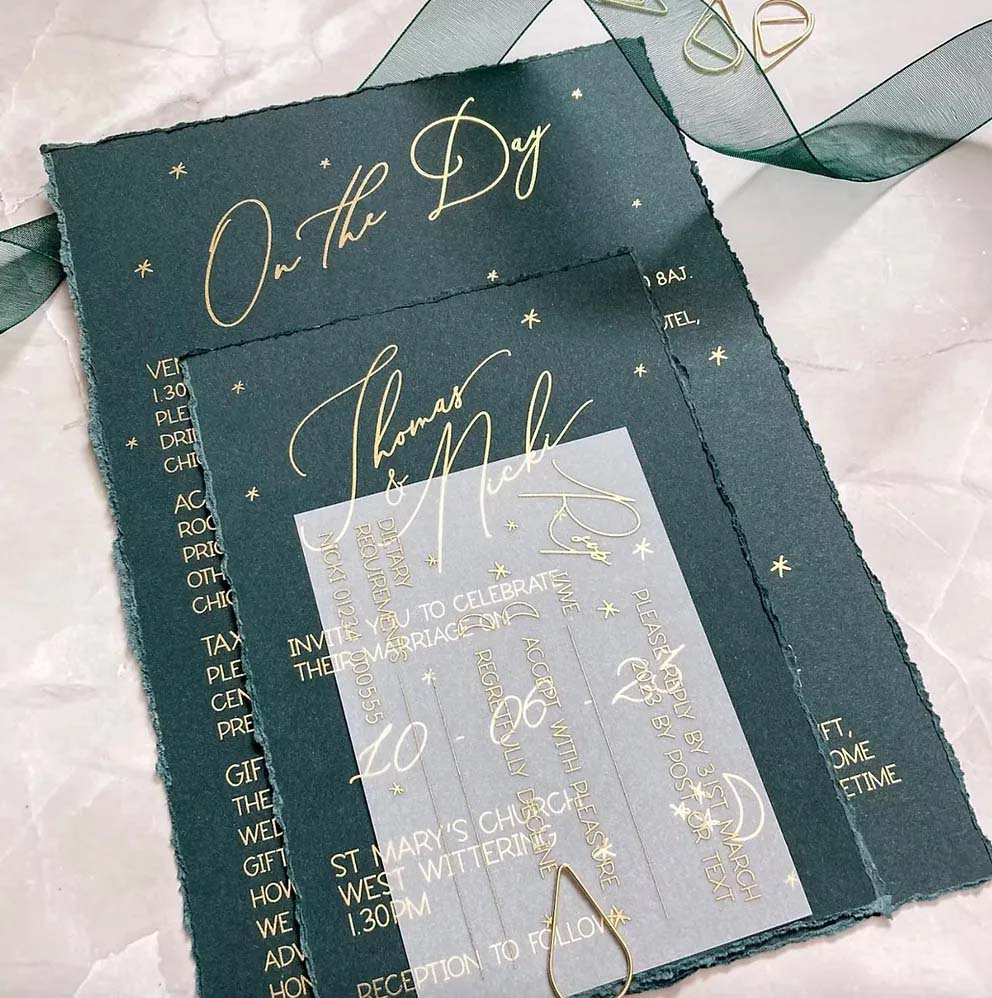 On the Day
8AJ.
OTEL,
VEN
1.30
PLE
DRI
CHI
AC
ROO
PRIC
OTH
CHIC
TAX
PLE
CEN
PRE
GIF
THE
WED
GIFT
HOW
WE
ADV
HON
FT,
OME
ETIME
Thomas
& Nicki
INVITE YOU TO CELEBRATE
THEIR MARRIAGE ON
10 - 06 -
ST MARY'S CHURCH
WEST WITTERING
1.30PM
RECEPTION TO FOLLOW
Rsvp
PLEASE REPLY BY 31ST MARCH
2023 BY POST OR TEXT
I/WE
ACCEPT WITH PLEASURE
REGRETFULLY DECLINE
DIETARY
REQUIREMENTS
NICKI 01234 000555